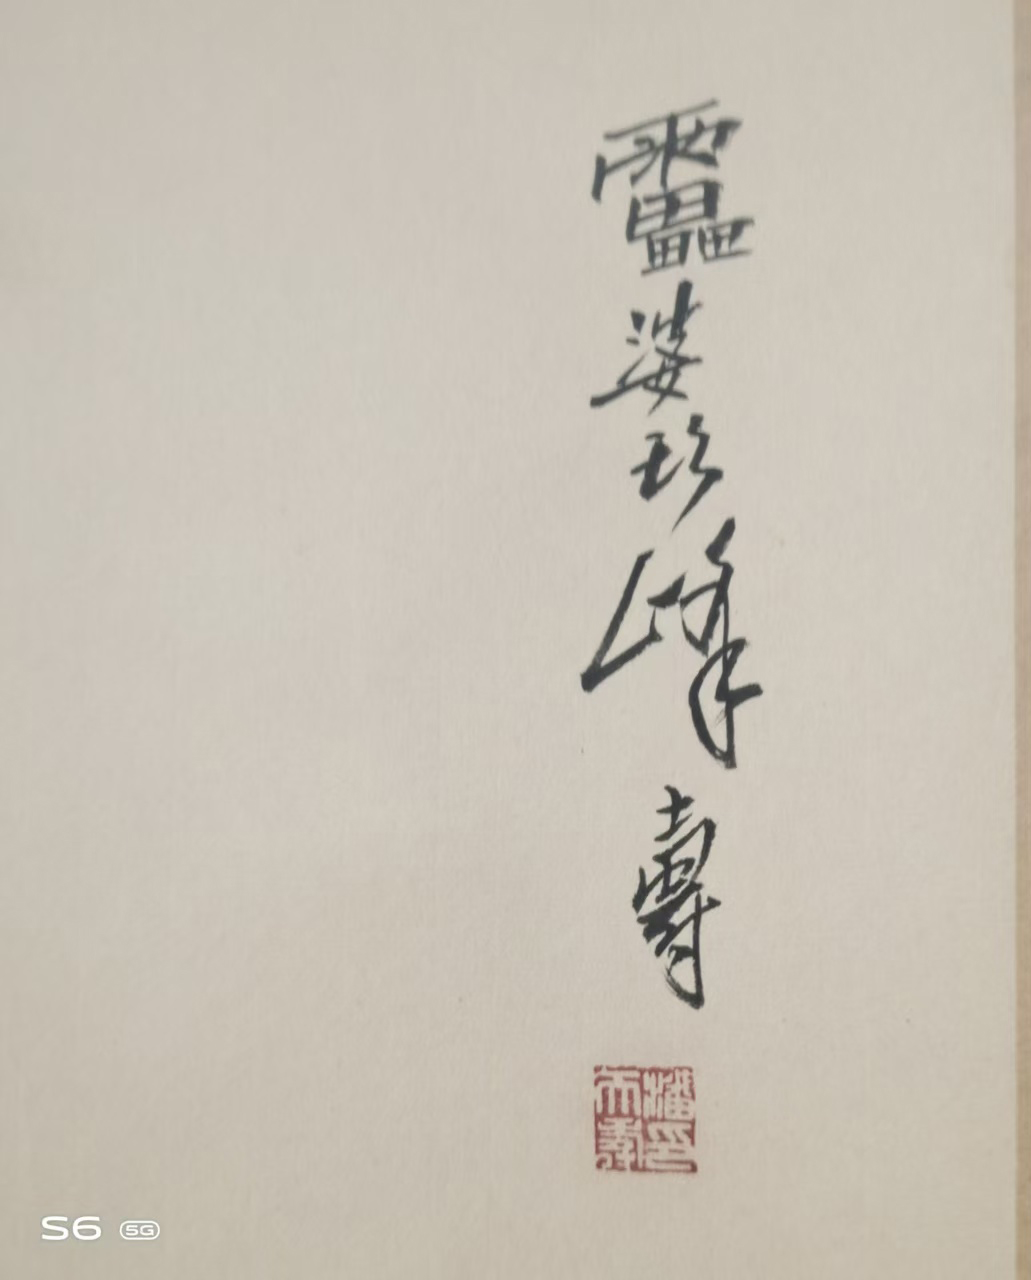 靁婆頭峰壽
潘天壽印
S6 5G